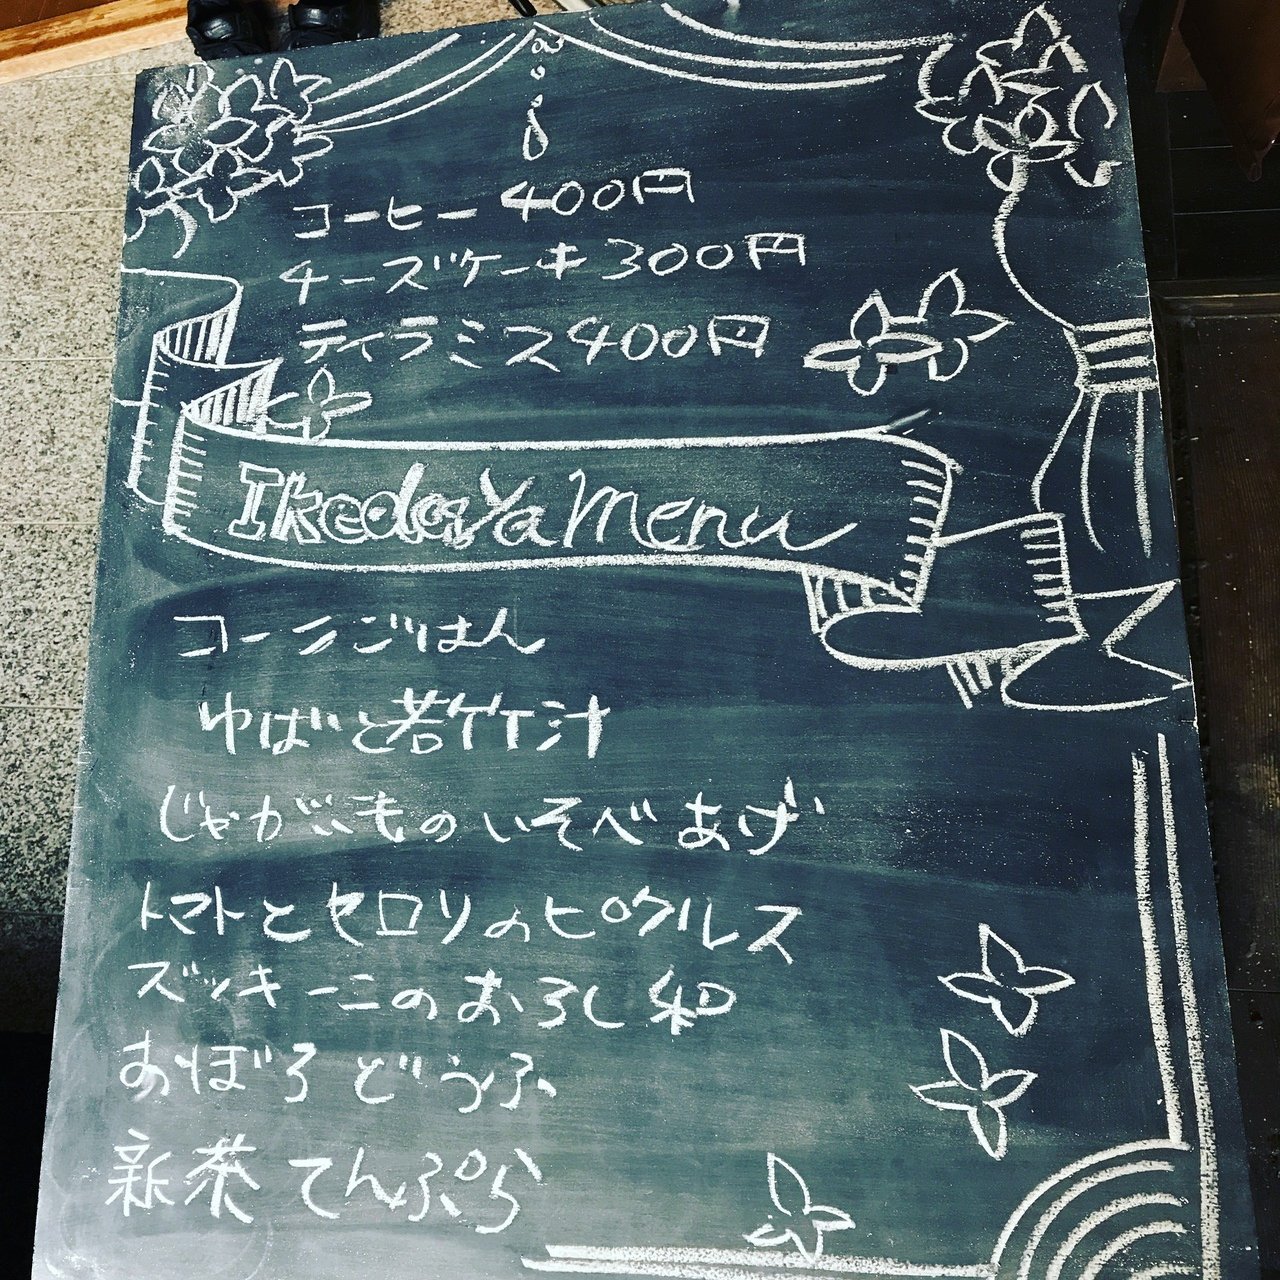 コーヒー 400円
チーズケーキ 300円
ティラミス 400円
Ikedaya menu
コーラごはん
ゆばと若竹汁
じゃがいものいそべあげ
トマトとセロリのピクルス
ズッキーニのおろし和
おぼろどうふ
新茶てんぷら